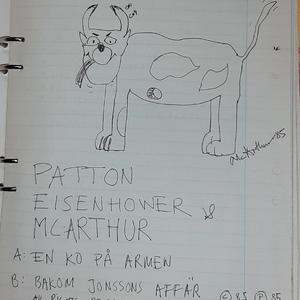 McArthur 85
PATTON
EISENHOWER &
MCARTHUR
A: EN KO PÅ ARMEN
B: BAKOM JONSSONS AFFÄR
AV
© 85 Ⓟ 85